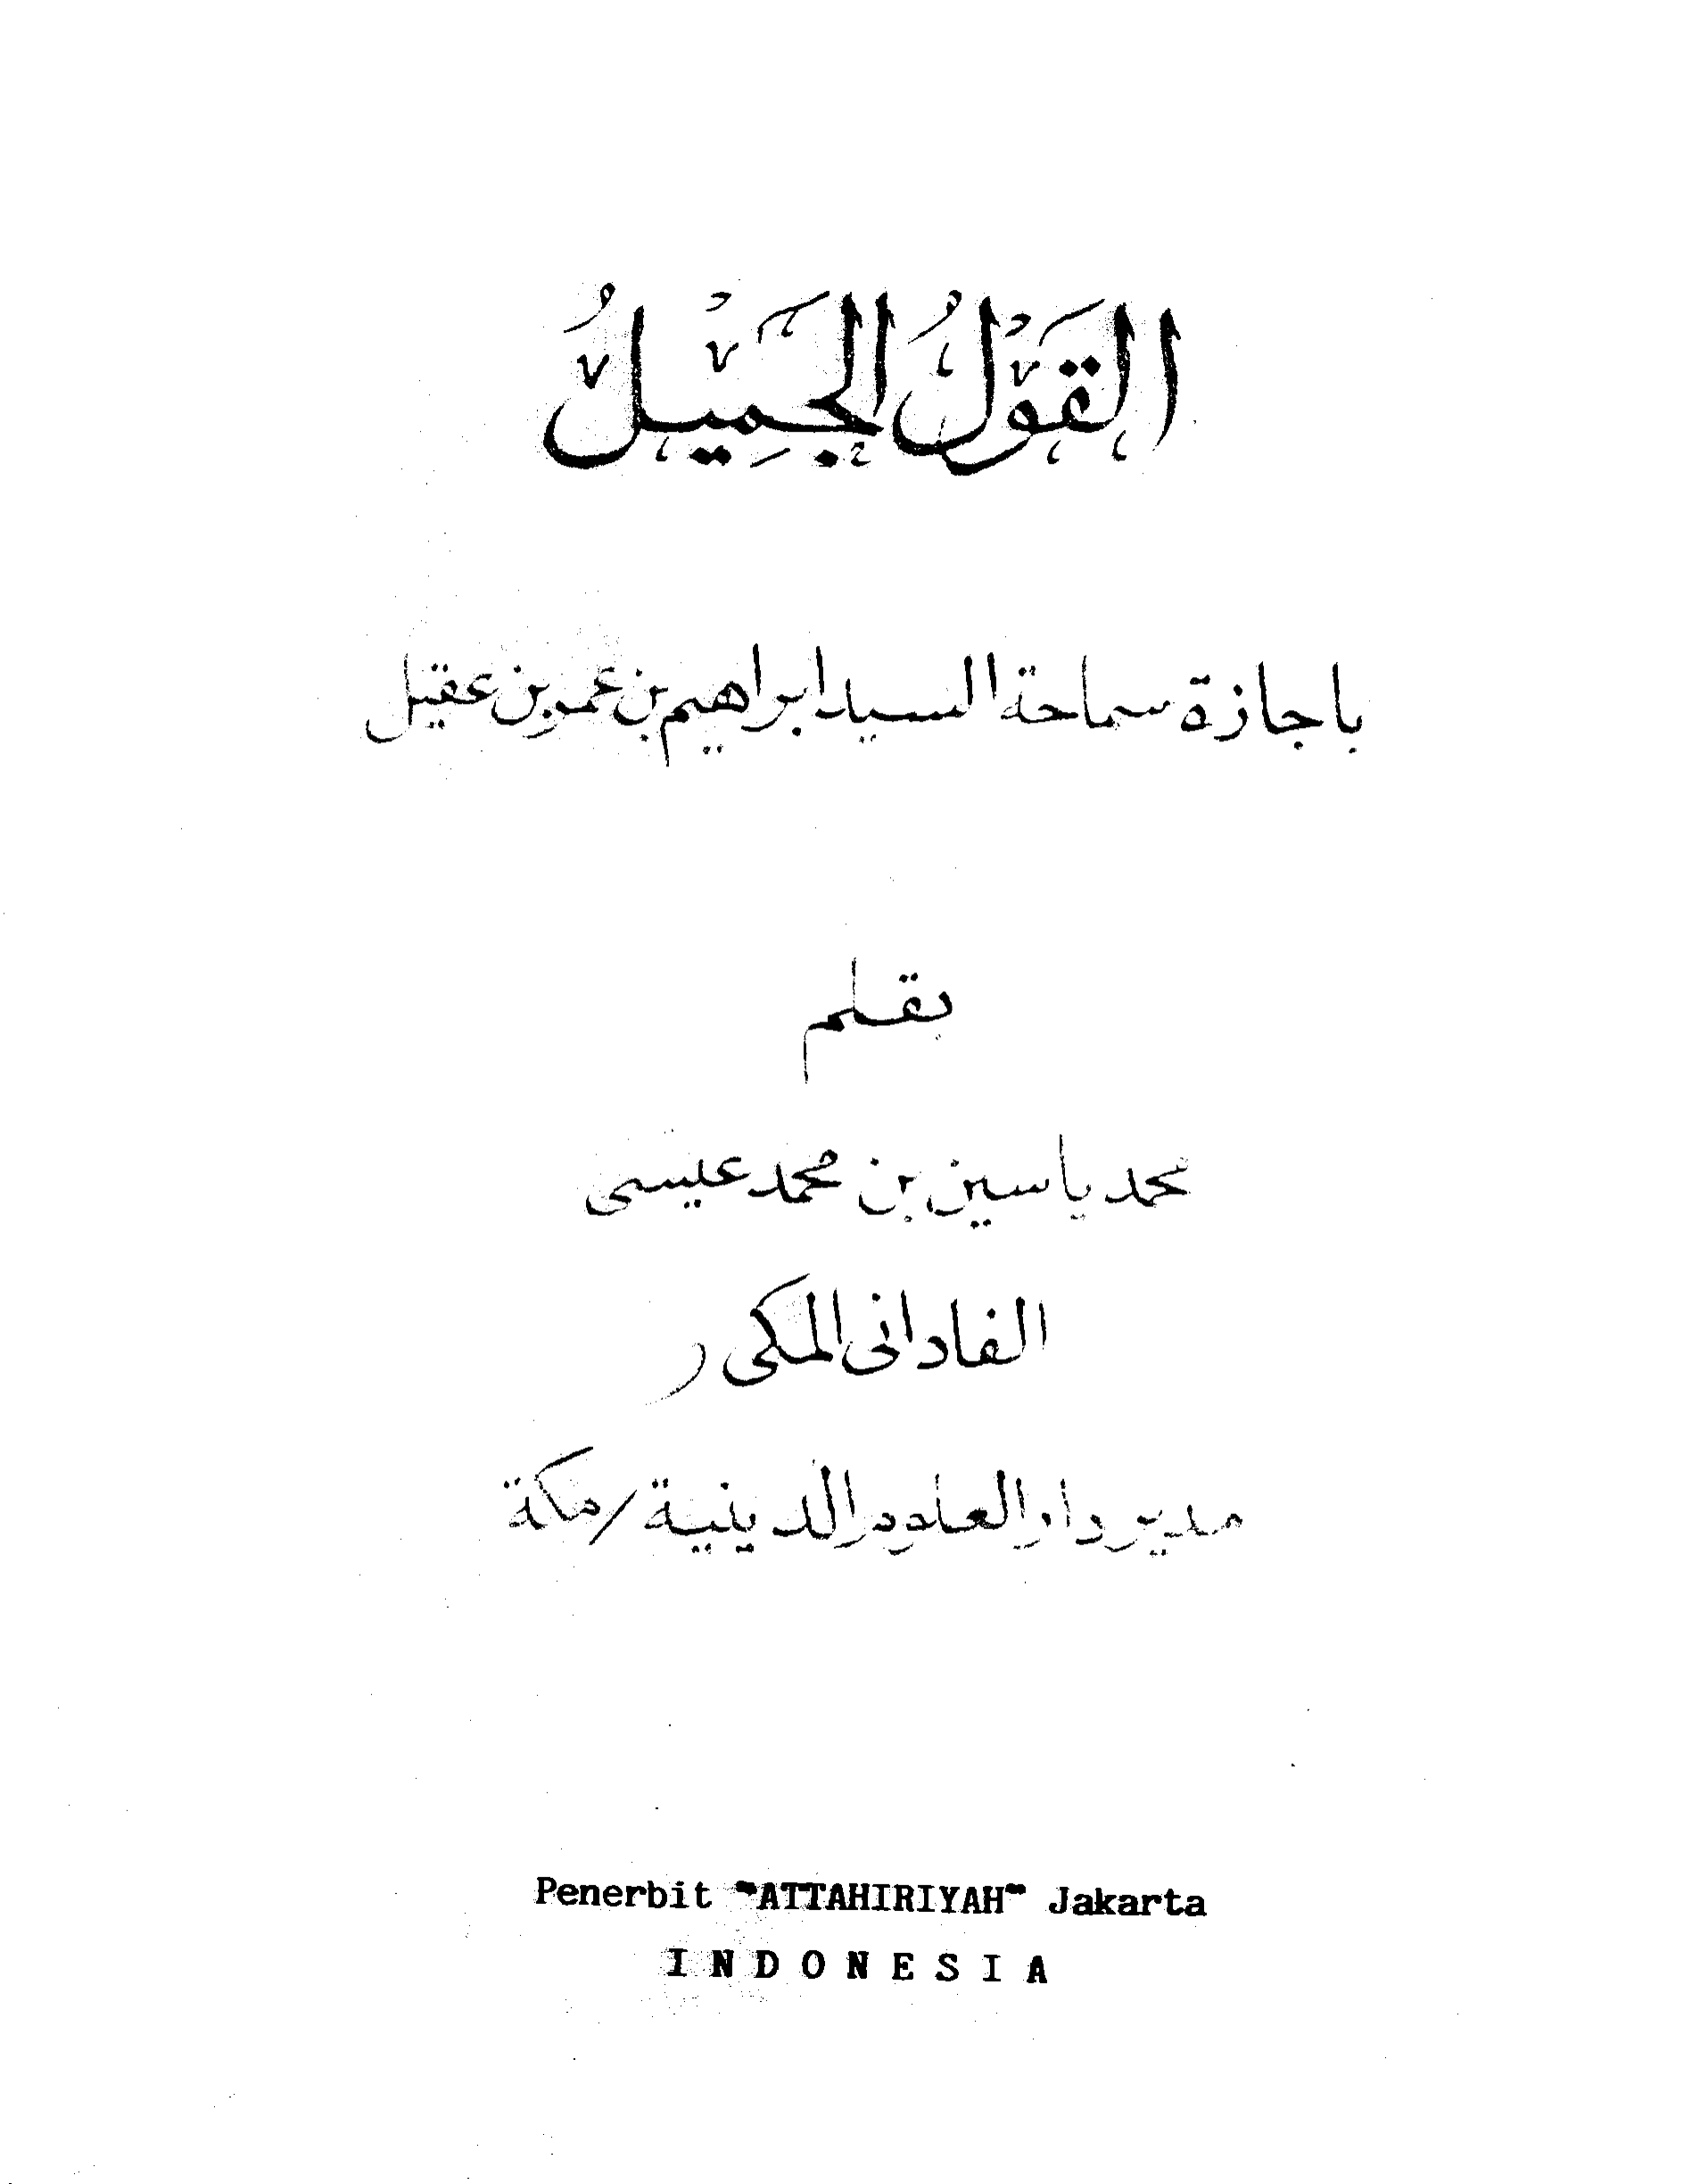 القَوْلُ الجَمِيْلُ
باجازة سماحة السيد ابراهيم بن عمر بن عقيل
بقلم
محمد ياسين بن محمد عيسى
الفادانى المكى
مدير دار العلوم الدينية / مكة
Penerbit "ATTAHIRIYAH" Jakarta
INDONESIA